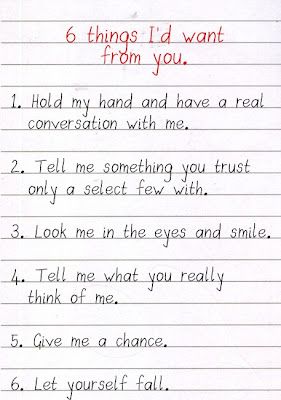 6 things I'd want
from you.
1. Hold my hand and have a real
conversation with me.
2. Tell me something you trust
only a select few with.
3. Look me in the eyes and smile.
4. Tell me what you really
think of me.
5. Give me a chance.
6. Let yourself fall.